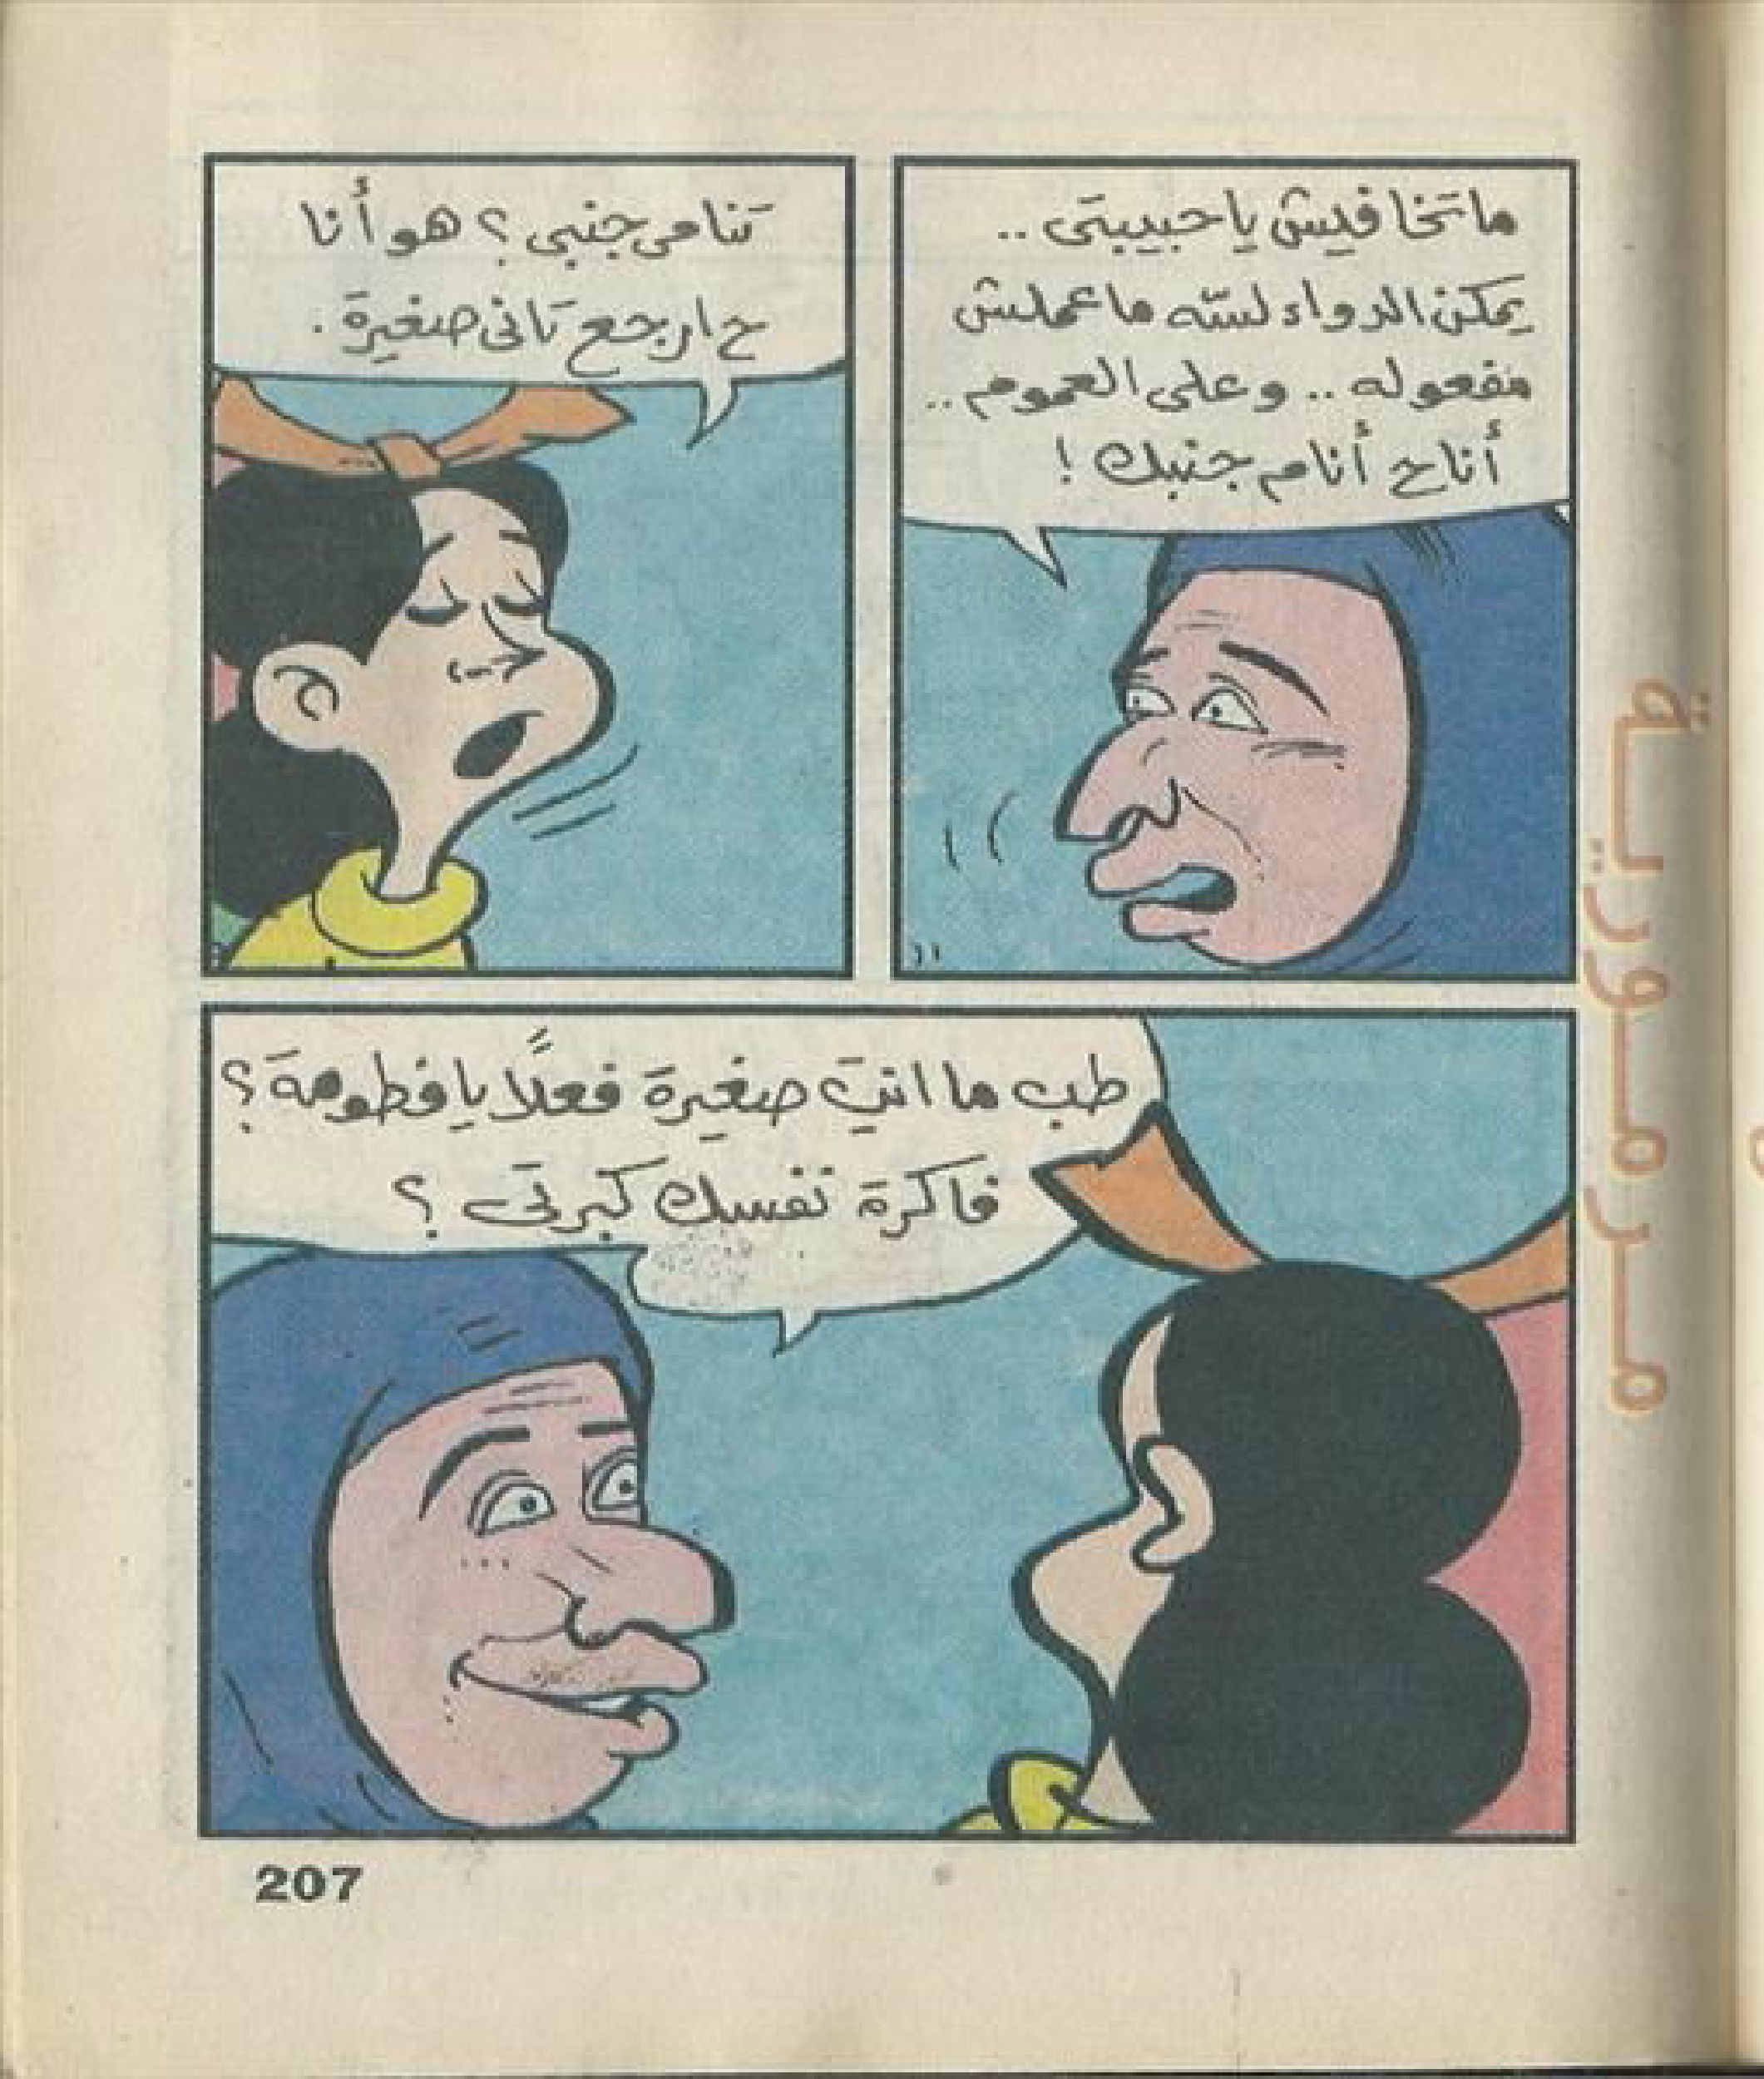 ماتخافيش ياحبيبتى ..
يمكن الدواء لسّه ماعملش
مفعوله .. وعلى العموم ..
أناح أنام جنبك !
تنامى جنبى ؟ هو أنا
ح ارجع تانى صغيرة .
طب ما انتِ صغيرة فعلاً يا فطومة ؟
فاكرة نفسك كبرتى ؟
207
مرمورية